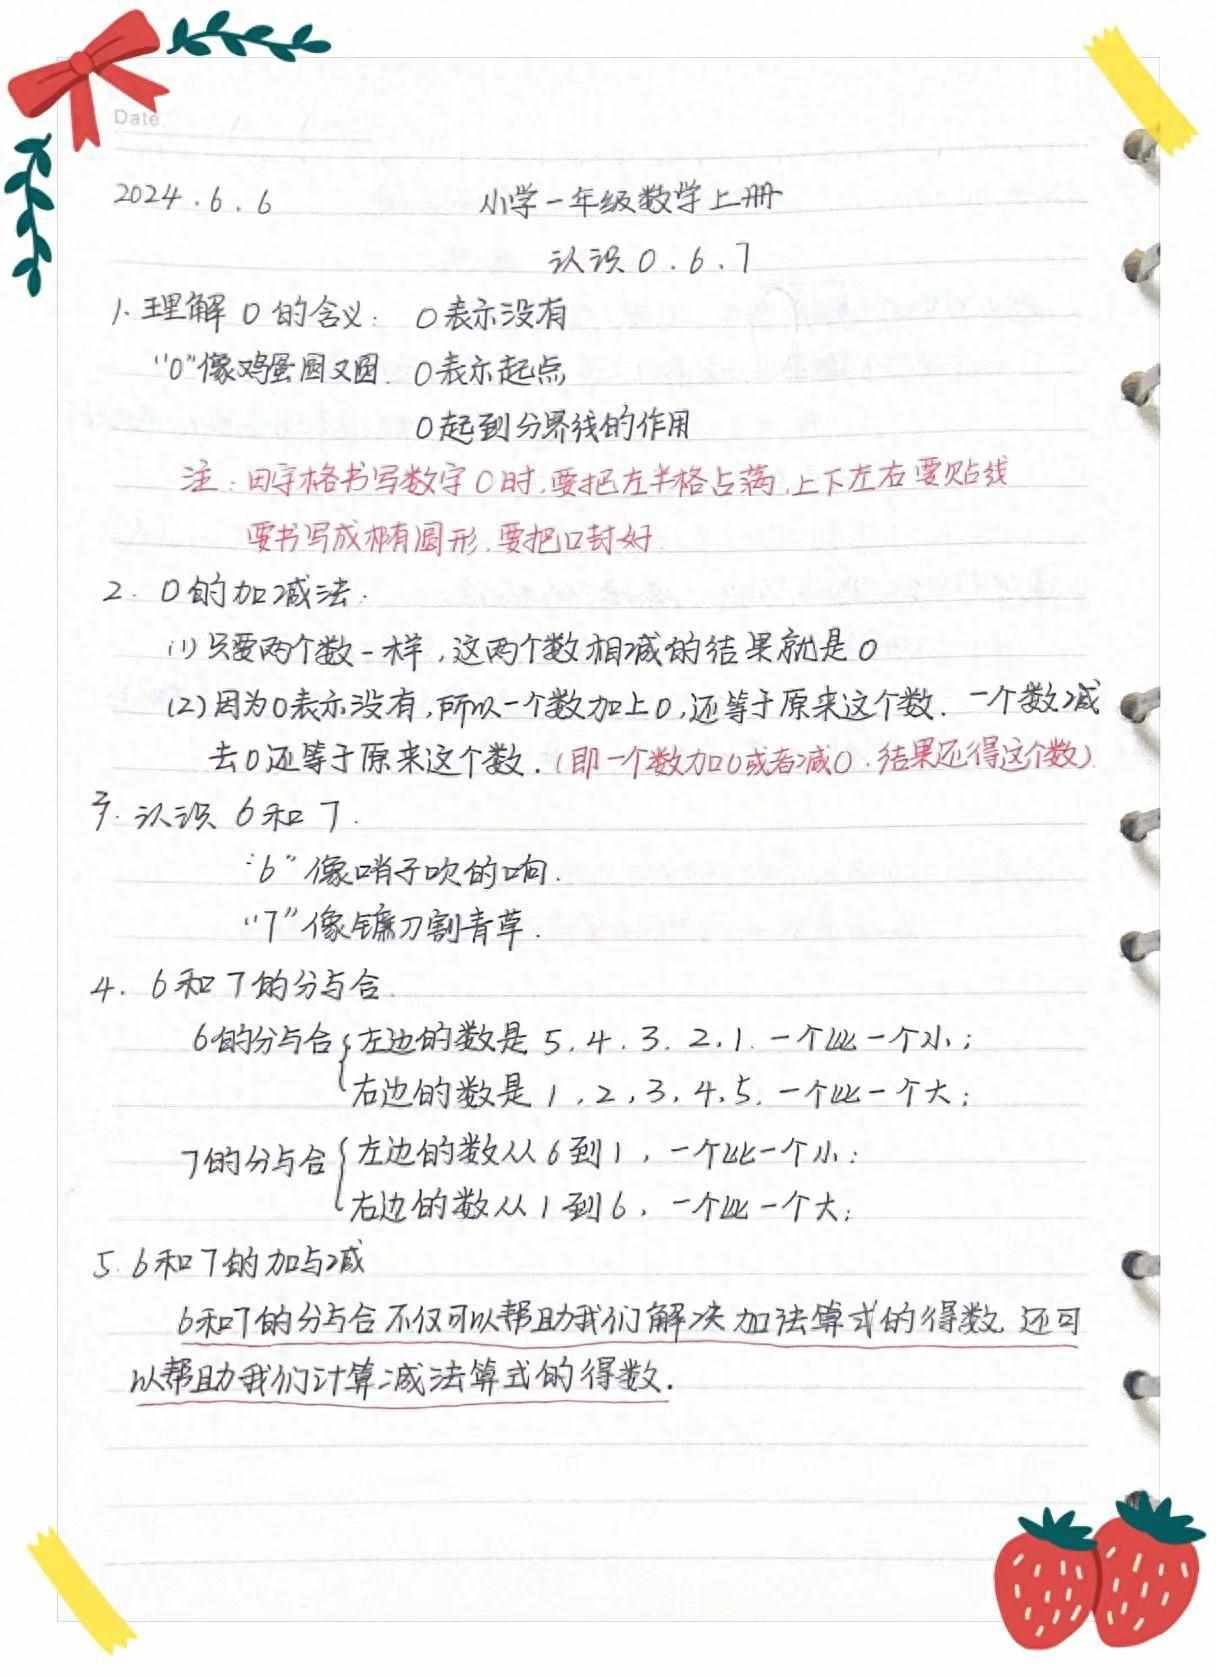 Date
2024.6.6 小学一年级数学上册
认识0.6.7
1.理解0的含义: 0表示没有
"0"像鸡蛋圆又圆. 0表示起点
0起到分界线的作用
注:田字格书写数字0时,要把左半格占满,上下左右要贴线
要书写成椭圆形.要把口封好.
2. 0的加减法:
(1)只要两个数一样,这两个数相减的结果就是0
(2)因为0表示没有,所以一个数加上0,还等于原来这个数.一个数减
去0还等于原来这个数.(即一个数加0或者减0.结果还得这个数)
3.认识6和7.
"6"像哨子吹的响.
"7"像镰刀割青草.
4. 6和7的分与合.
6的分与合{左边的数是5,4.3.2,1.一个比一个小;
右边的数是1,2,3,4,5.一个比一个大;
7的分与合{左边的数从6到1,一个比一个小;
右边的数从1到6,一个比一个大;
5.6和7的加与减
6和7的分与合不仅可以帮助我们解决加法算式的得数.还可
以帮助我们计算减法算式的得数.